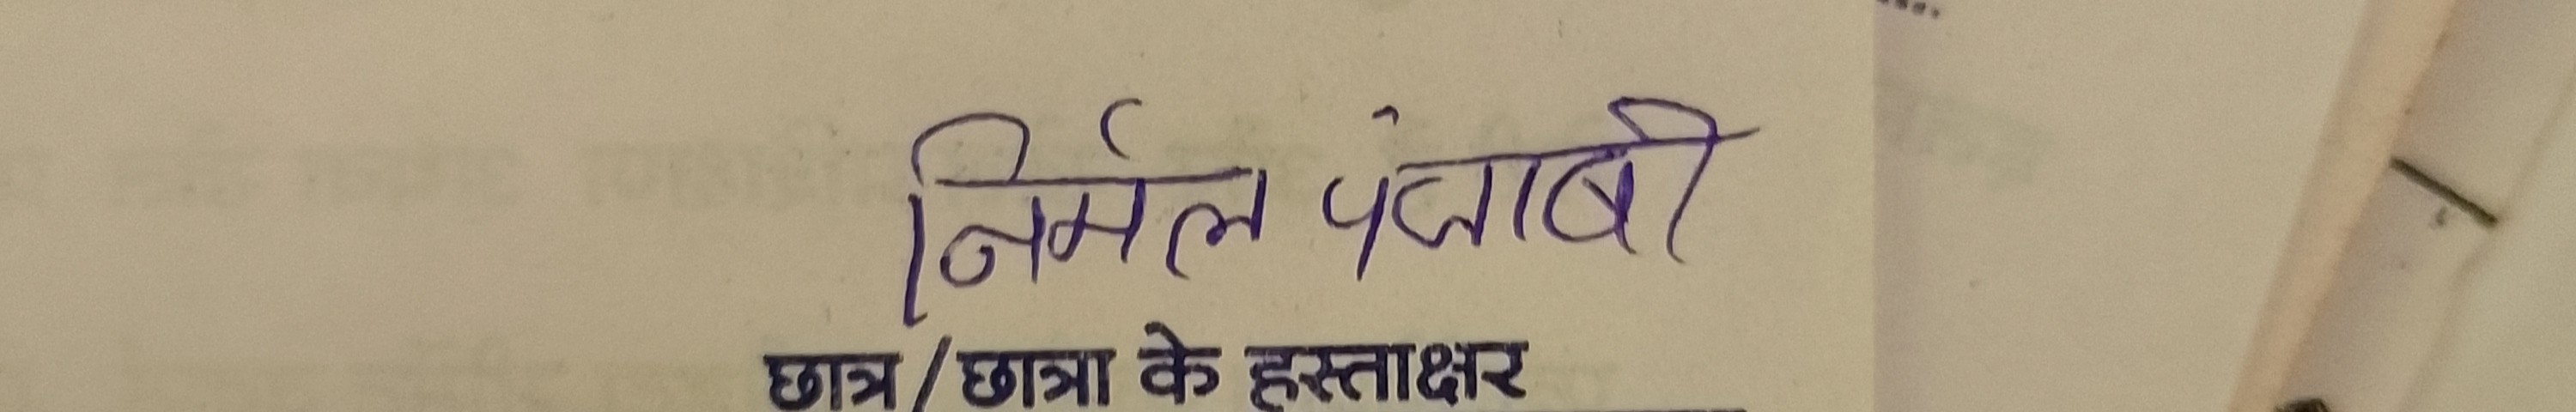 निर्मल पंजाबी
छात्र/छात्रा के हस्ताक्षर